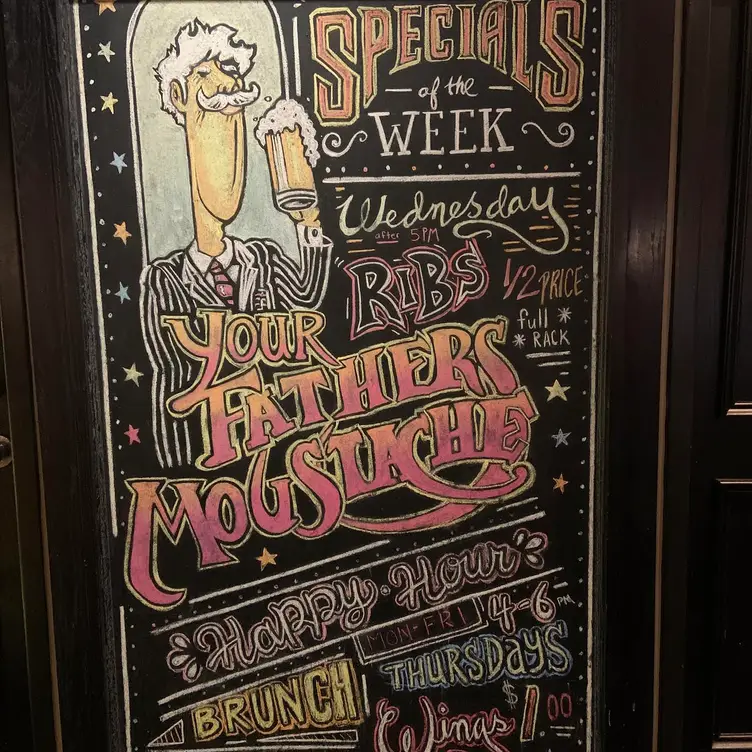 SPECIALS
of the
WEEK
Wednesday
after 5PM
RiBS
1/2 PRICE
full
RACK
YOUR
FATHERS
MOUSTACHE
Happy Hour
MON-FRI 4-6 PM
THURSDAYS
BRUNCH
Wings $1.00